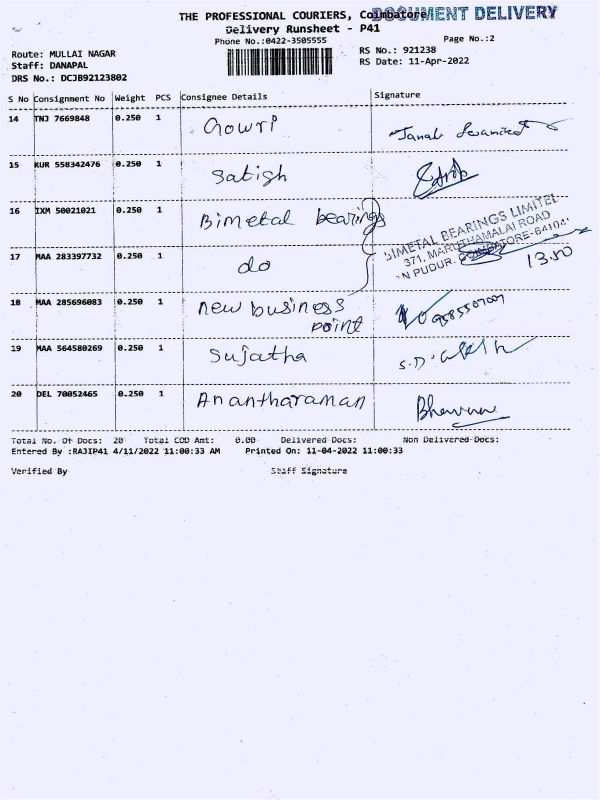 THE PROFESSIONAL COURIERS, Coimbatore
DOCUMENT DELIVERY
Delivery Runsheet - P41
Phone No.:0422-3505555
Page No.:2
Route: MULLAI NAGAR
RS No.: 921238
Staff: DANAPAL
RS Date: 11-Apr-2022
DRS No.: DCJB92123802
S No Consignment No Weight PCS Consignee Details Signature
14 TNJ 7669848 0.250 1 Gowri
15 KUR 558342476 0.250 1 Satish
16 IXM 50021021 0.250 1 Bimetal bearings
BIMETAL BEARINGS LIMITED
371, MARUTHAMALAI ROAD
N PUDUR, COIMBATORE-64104
17 MAA 283397732 0.250 1 do 13.50
18 MAA 285696083 0.250 1 new business
point
19 MAA 564580269 0.250 1 Sujatha
20 DEL 70052465 0.250 1 Anantharaman
Total No. Of Docs: 20 Total COD Amt: 0.00 Delivered Docs: Non Delivered Docs:
Entered By :RAJIP41 4/11/2022 11:00:33 AM Printed On: 11-04-2022 11:00:33
Verified By Staff Signature